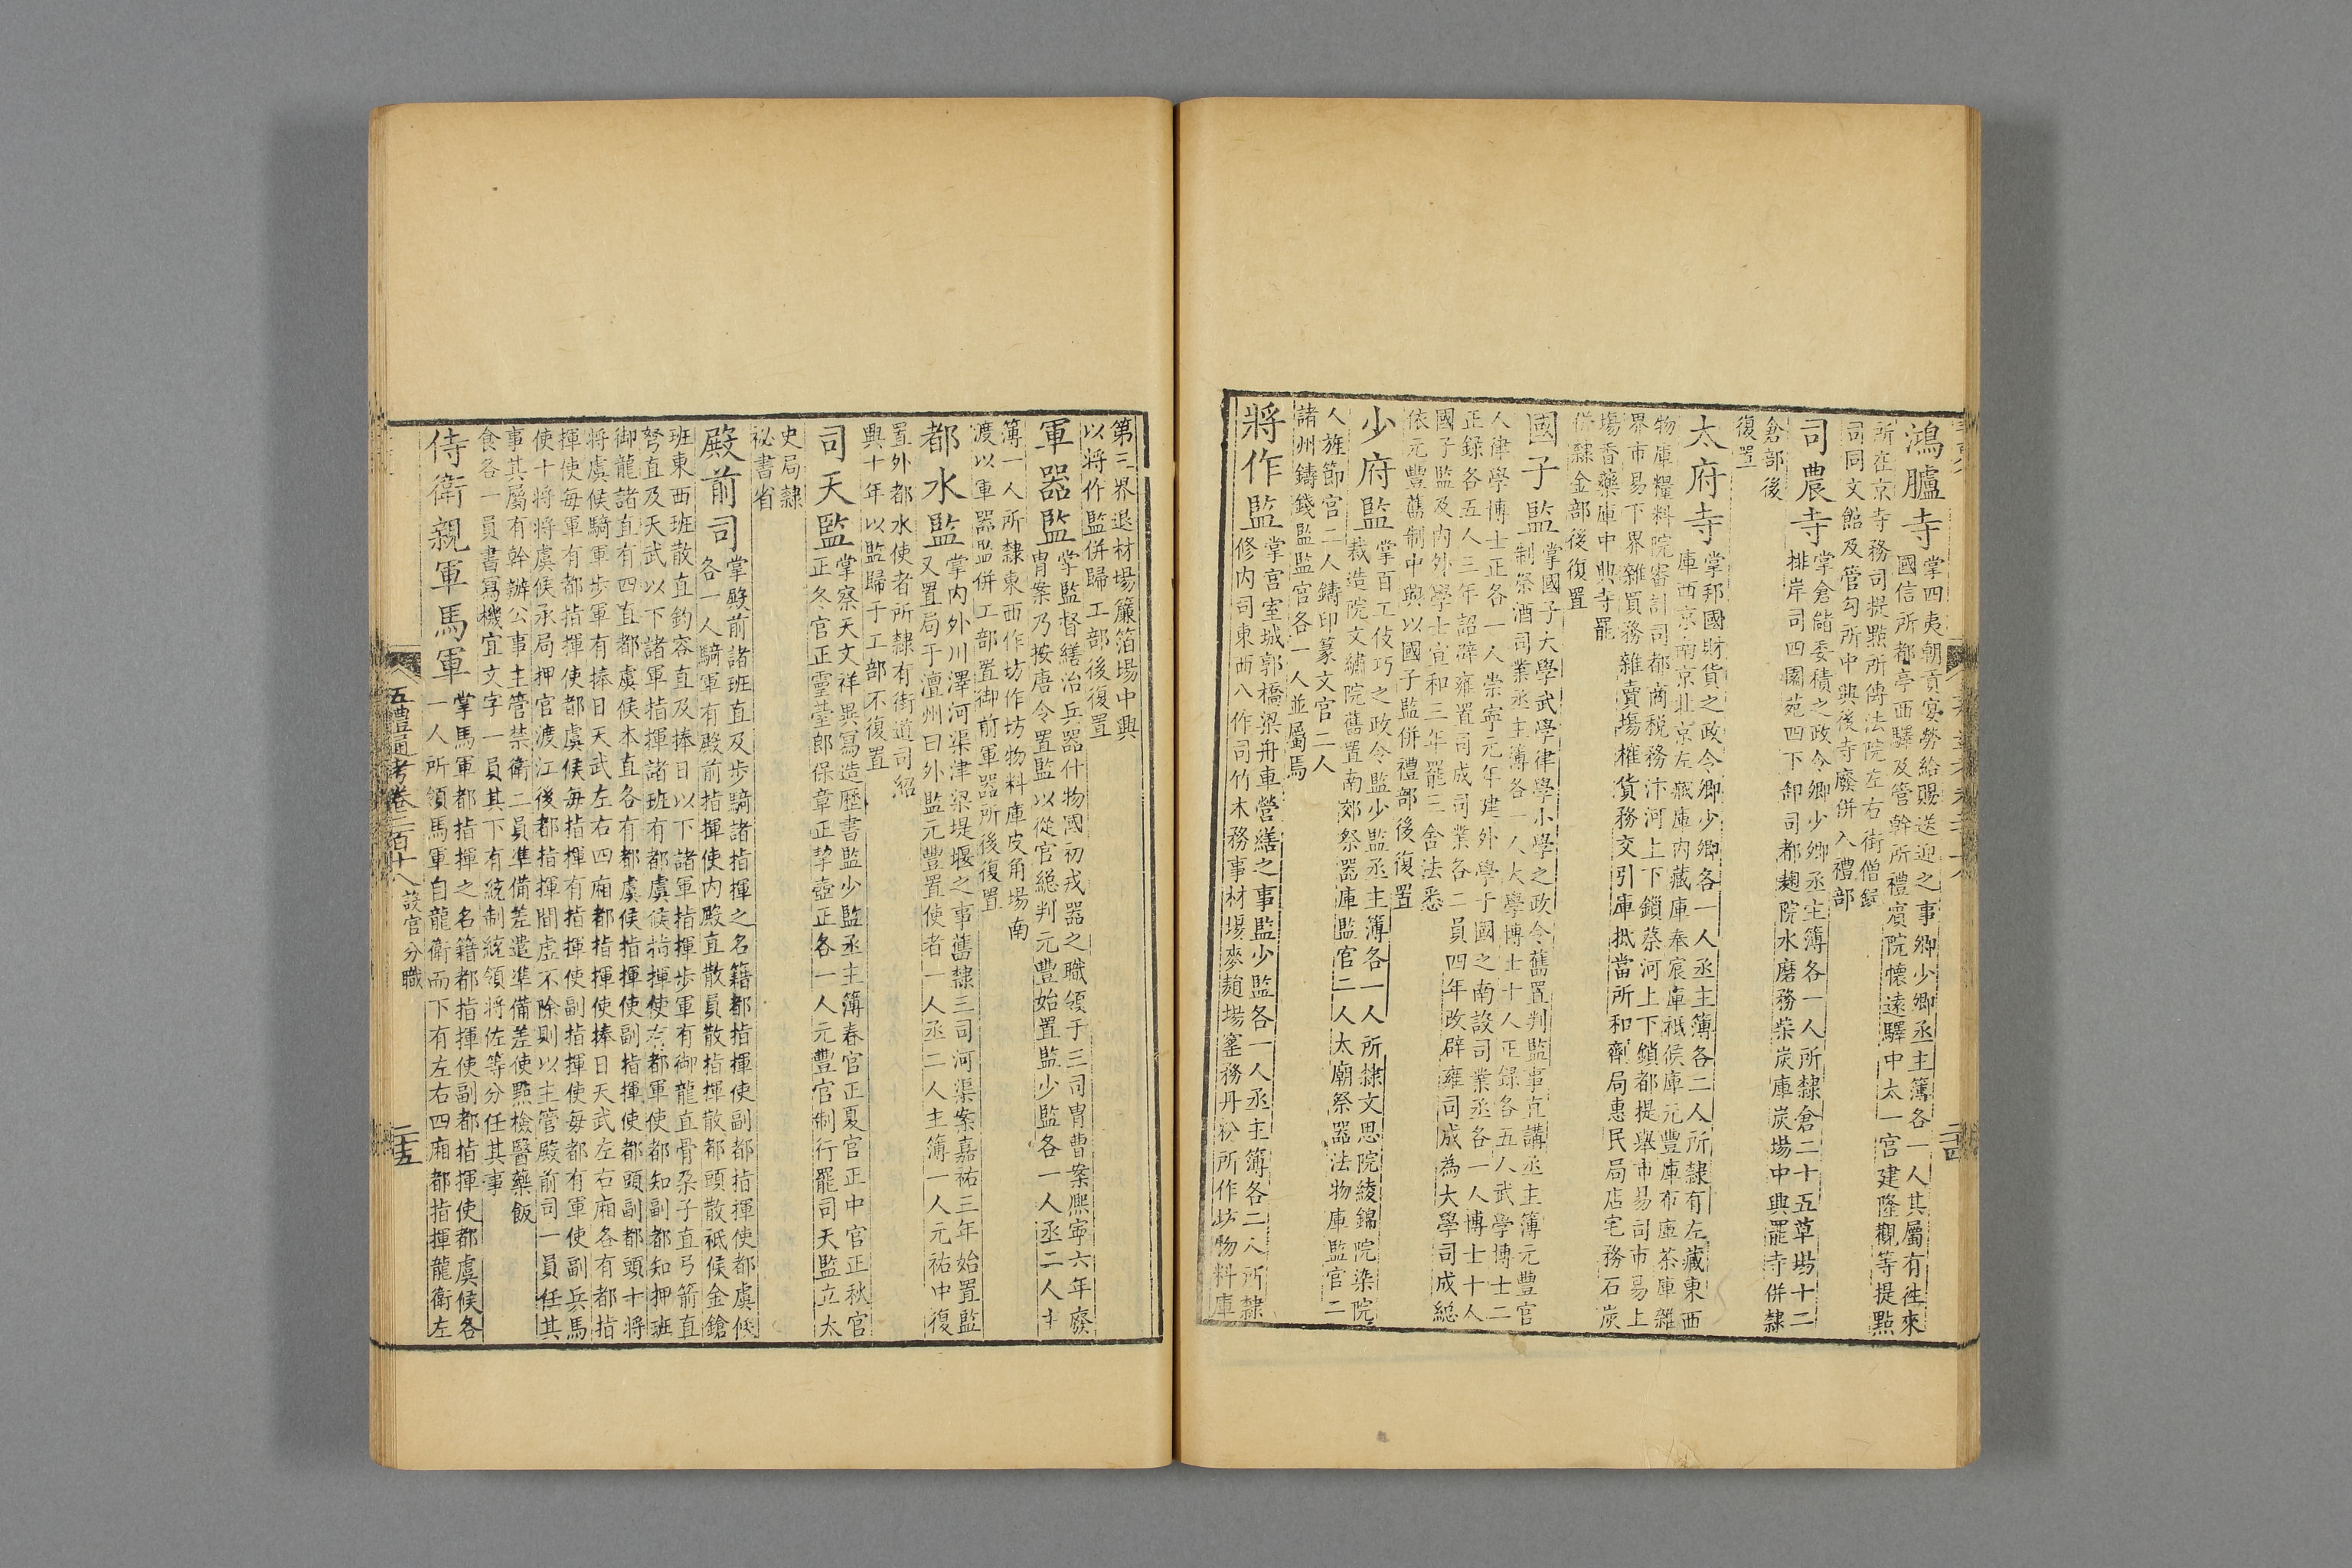 鴻臚寺掌四夷朝貢宴勞給賜送迎之事卿少卿丞主簿各一人其屬有徃來
國信所都亭西驛及管幹所禮賓院懷遠驛中太一宮建隆觀等提點
所在京寺務司提點所傳法院左右街僧録
司同文館及管勾所中興後寺廢併入禮部
司農寺掌倉儲委積之政令卿少卿丞主簿各一人所隸倉二十五草塲十二
排岸司四園苑四下卸司都麴院水磨務柴炭庫炭塲中興罷寺併隸
倉部後
復置
太府寺掌邦國財貨之政令卿少卿各一人丞主簿各二人所隸有左藏東西
庫西京南京北京左藏庫内藏庫奉宸庫祗候庫元豐庫布庫茶庫雜
物庫糧料院審計司都商稅務汴河上下鎖蔡河上下鎖都提舉市易司市易上
界市易下界雜買務雜賣塲榷貨務交引庫抵當所和劑局惠民局店宅務石炭
塲香藥庫中興寺罷
併隸金部後復置
國子監掌國子大學武學律學小學之政令舊置判監事直講丞主簿元豐官
制祭酒司業丞主簿各一人大學博士十人正録各五人武學博士二
人律學博士正各一人崇寧元年建外學于國之南設司業丞各一人博士十人
正録各五人三年詔辟雍置司成司業各二員四年改辟雍司成為大學司成總
國子監及内外學士宣和三年罷三舍法悉
依元豐舊制中興以國子監併禮部後復置
少府監掌百工伎巧之政令監少監丞主簿各一人所隸文思院綾錦院染院
裁造院文繡院舊置南郊祭器庫監官二人太廟祭器法物庫監官二
人旌節官二人鑄印篆文官二人
諸州鑄錢監監官各一人並屬焉
將作監掌宮室城郭橋梁舟車營繕之事監少監各一人丞主簿各二人所隸
修内司東西八作司竹木務事材塲麥䴬塲窰務丹粉所作坊物料庫
第三界退材塲簾箔塲中興
以將作監併歸工部後復置
軍器監掌監督繕治兵器什物國初戎器之職領于三司胄曹案熙寧六年廢
胄案乃按唐令置監以從官總判元豐始置監少監各一人丞二人主
簿一人所隸東西作坊作坊物料庫皮角塲南
渡以軍器監併工部置御前軍器所後復置
都水監掌内外川澤河渠津梁堤堰之事舊隸三司河渠案嘉祐三年始置監
又置局于澶州曰外監元豐置使者一人丞二人主簿一人元祐中復
置外都水使者所隸有街道司紹
興十年以監歸于工部不復置
司天監掌察天文祥異寫造歷書監少監丞主簿春官正夏官正中官正秋官
正冬官正靈臺郎保章正挈壺正各一人元豐官制行罷司天監立太
史局隸
祕書省
殿前司掌殿前諸班直及步騎諸指揮之名籍都指揮使副都指揮使都虞候
各一人騎軍有殿前指揮使内殿直散員散指揮散都頭散祗候金鎗
班東西班散直鈞容直及捧日以下諸軍指揮步軍有御龍直骨朶子直弓箭直
弩直及天武以下諸軍指揮諸班有都虞候指揮使左都軍使都知副都知押班
御龍諸直有四直都虞候本直各有都虞候指揮使副指揮使都頭副都頭十將
將虞候騎軍步軍有捧日天武左右四廂都指揮使捧日天武左右廂各有都指
揮使每軍有都指揮使都虞候每指揮有指揮使副指揮使每都有軍使副兵馬
使十將將虞候承局押官渡江後都指揮間虚不除則以主管殿前司一員任其
事其屬有幹辦公事主管禁衛二員準備差遣準備差使點檢醫藥飯
食各一員書寫機宜文字一員其下有統制統領將佐等分任其事
侍衛親軍馬軍掌馬軍都指揮之名籍都指揮使副都指揮使都虞候各
一人所領馬軍自龍衛而下有左右四廂都指揮龍衛左
五禮通考卷二百十八 設官分職 二十五